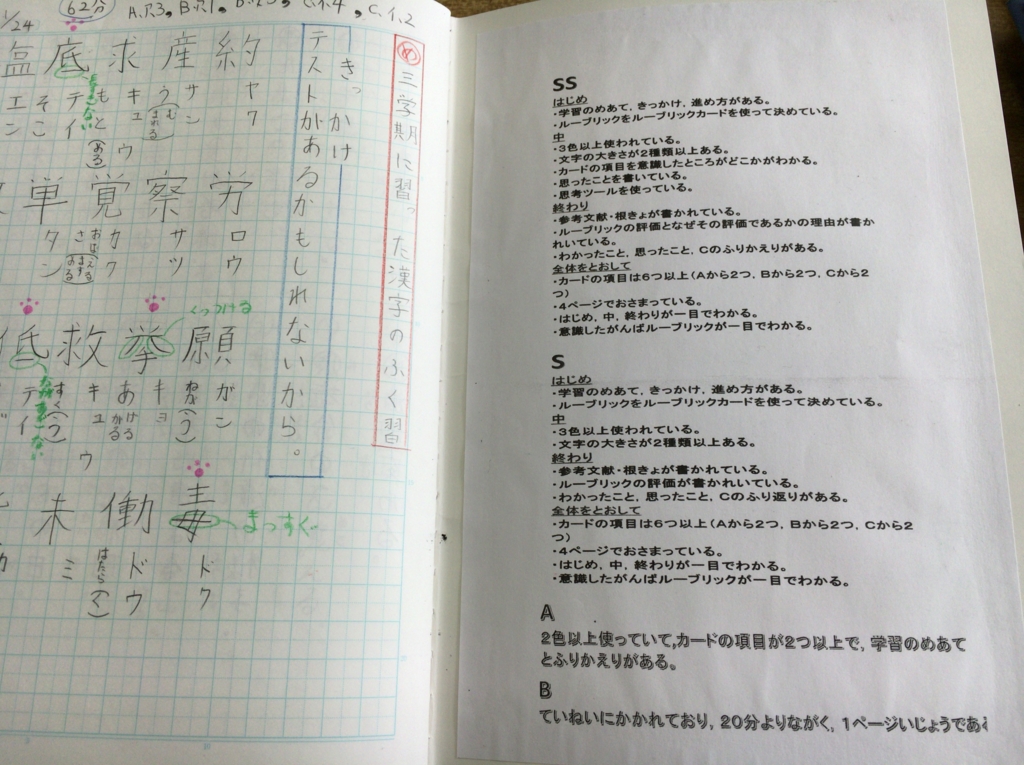 1/24
62分
A.ア.3, B.ア.1,
C.イ.2
め 三学期に習った漢字のふく習
きっかけ
テストがあるかもしれないから。
約 ヤク
産 サン う(む) (まれる)
求 キュウ もと(める)
底 テイ そこ
塩 エン
労 ロウ
察 サツ
覚 カク おぼ(える) さ(ます) (める)
単 タン
願 ガン ねが(う)
挙 キョ あ(げる) (がる)
くっつける
救 キュウ すく(う)
低 テイ
毒 ドク
まっすぐ
働 ドウ はたら(く)
未 ミ
SS
はじめ
・学習のめあて，きっかけ，進め方がある。
・ルーブリックをルーブリックカードを使って決めている。
中
・3色以上使われている。
・文字の大きさが2種類以上ある。
・カードの項目を意識したところがどこかがわかる。
・思ったことを書いている。
・思考ツールを使っている。
終わり
・参考文献・根きょが書かれている。
・ルーブリックの評価となぜその評価であるかの理由が書か
れいている。
・わかったこと，思ったこと，Cのふりかえりがある。
全体をとおして
・カードの項目は6つ以上（Aから2つ，Bから2つ，Cから2
つ）
・4ページでおさまっている。
・はじめ，中，終わりが一目でわかる。
・意識したがんばルーブリックが一目でわかる。
S
はじめ
・学習のめあて，きっかけ，進め方がある。
・ルーブリックをルーブリックカードを使って決めている。
中
・3色以上使われている。
・文字の大きさが2種類以上ある。
終わり
・参考文献・根きょが書かれている。
・ルーブリックの評価が書かれいている。
・わかったこと，思ったこと，Cのふり返りがある。
全体をとおして
・カードの項目は6つ以上（Aから2つ，Bから2つ，Cから2
つ）
・4ページでおさまっている。
・はじめ，中，終わりが一目でわかる。
・意識したがんばルーブリックが一目でわかる。
A
2色以上使っていて,カードの項目が2つ以上で，学習のめあて
とふりかえりがある。
B
ていねいにかかれており，20分よりながく，1ページいじょうであ